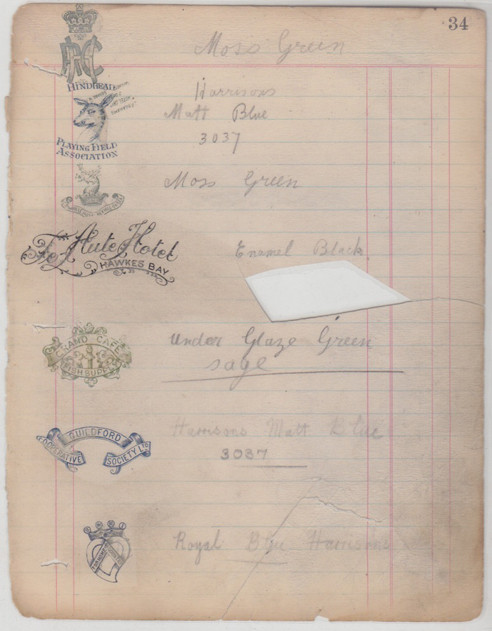 34
Moss Green
HINDHEAD
Harrisons
Matt Blue
3037
PLAYING FIELD
ASSOCIATION
Moss Green
Te Aute Hotel
HAWKES BAY
Enamel Black
GRAND CAFE
Under Glaze Green
sage
GUILDFORD
SOCIETY LTD
Harrisons Matt Blue
3037
Royal Blue Harrisons